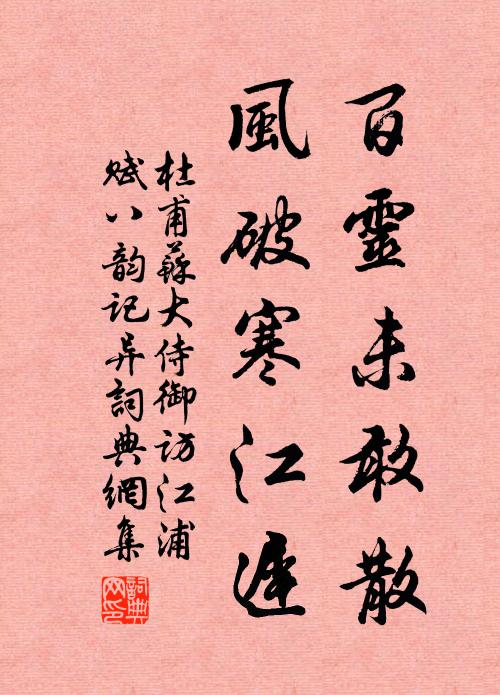 百靈未敢散
風破寒江遲
杜甫蘇大侍御訪江浦
賦八韵記异詞典網集
詞典
网印